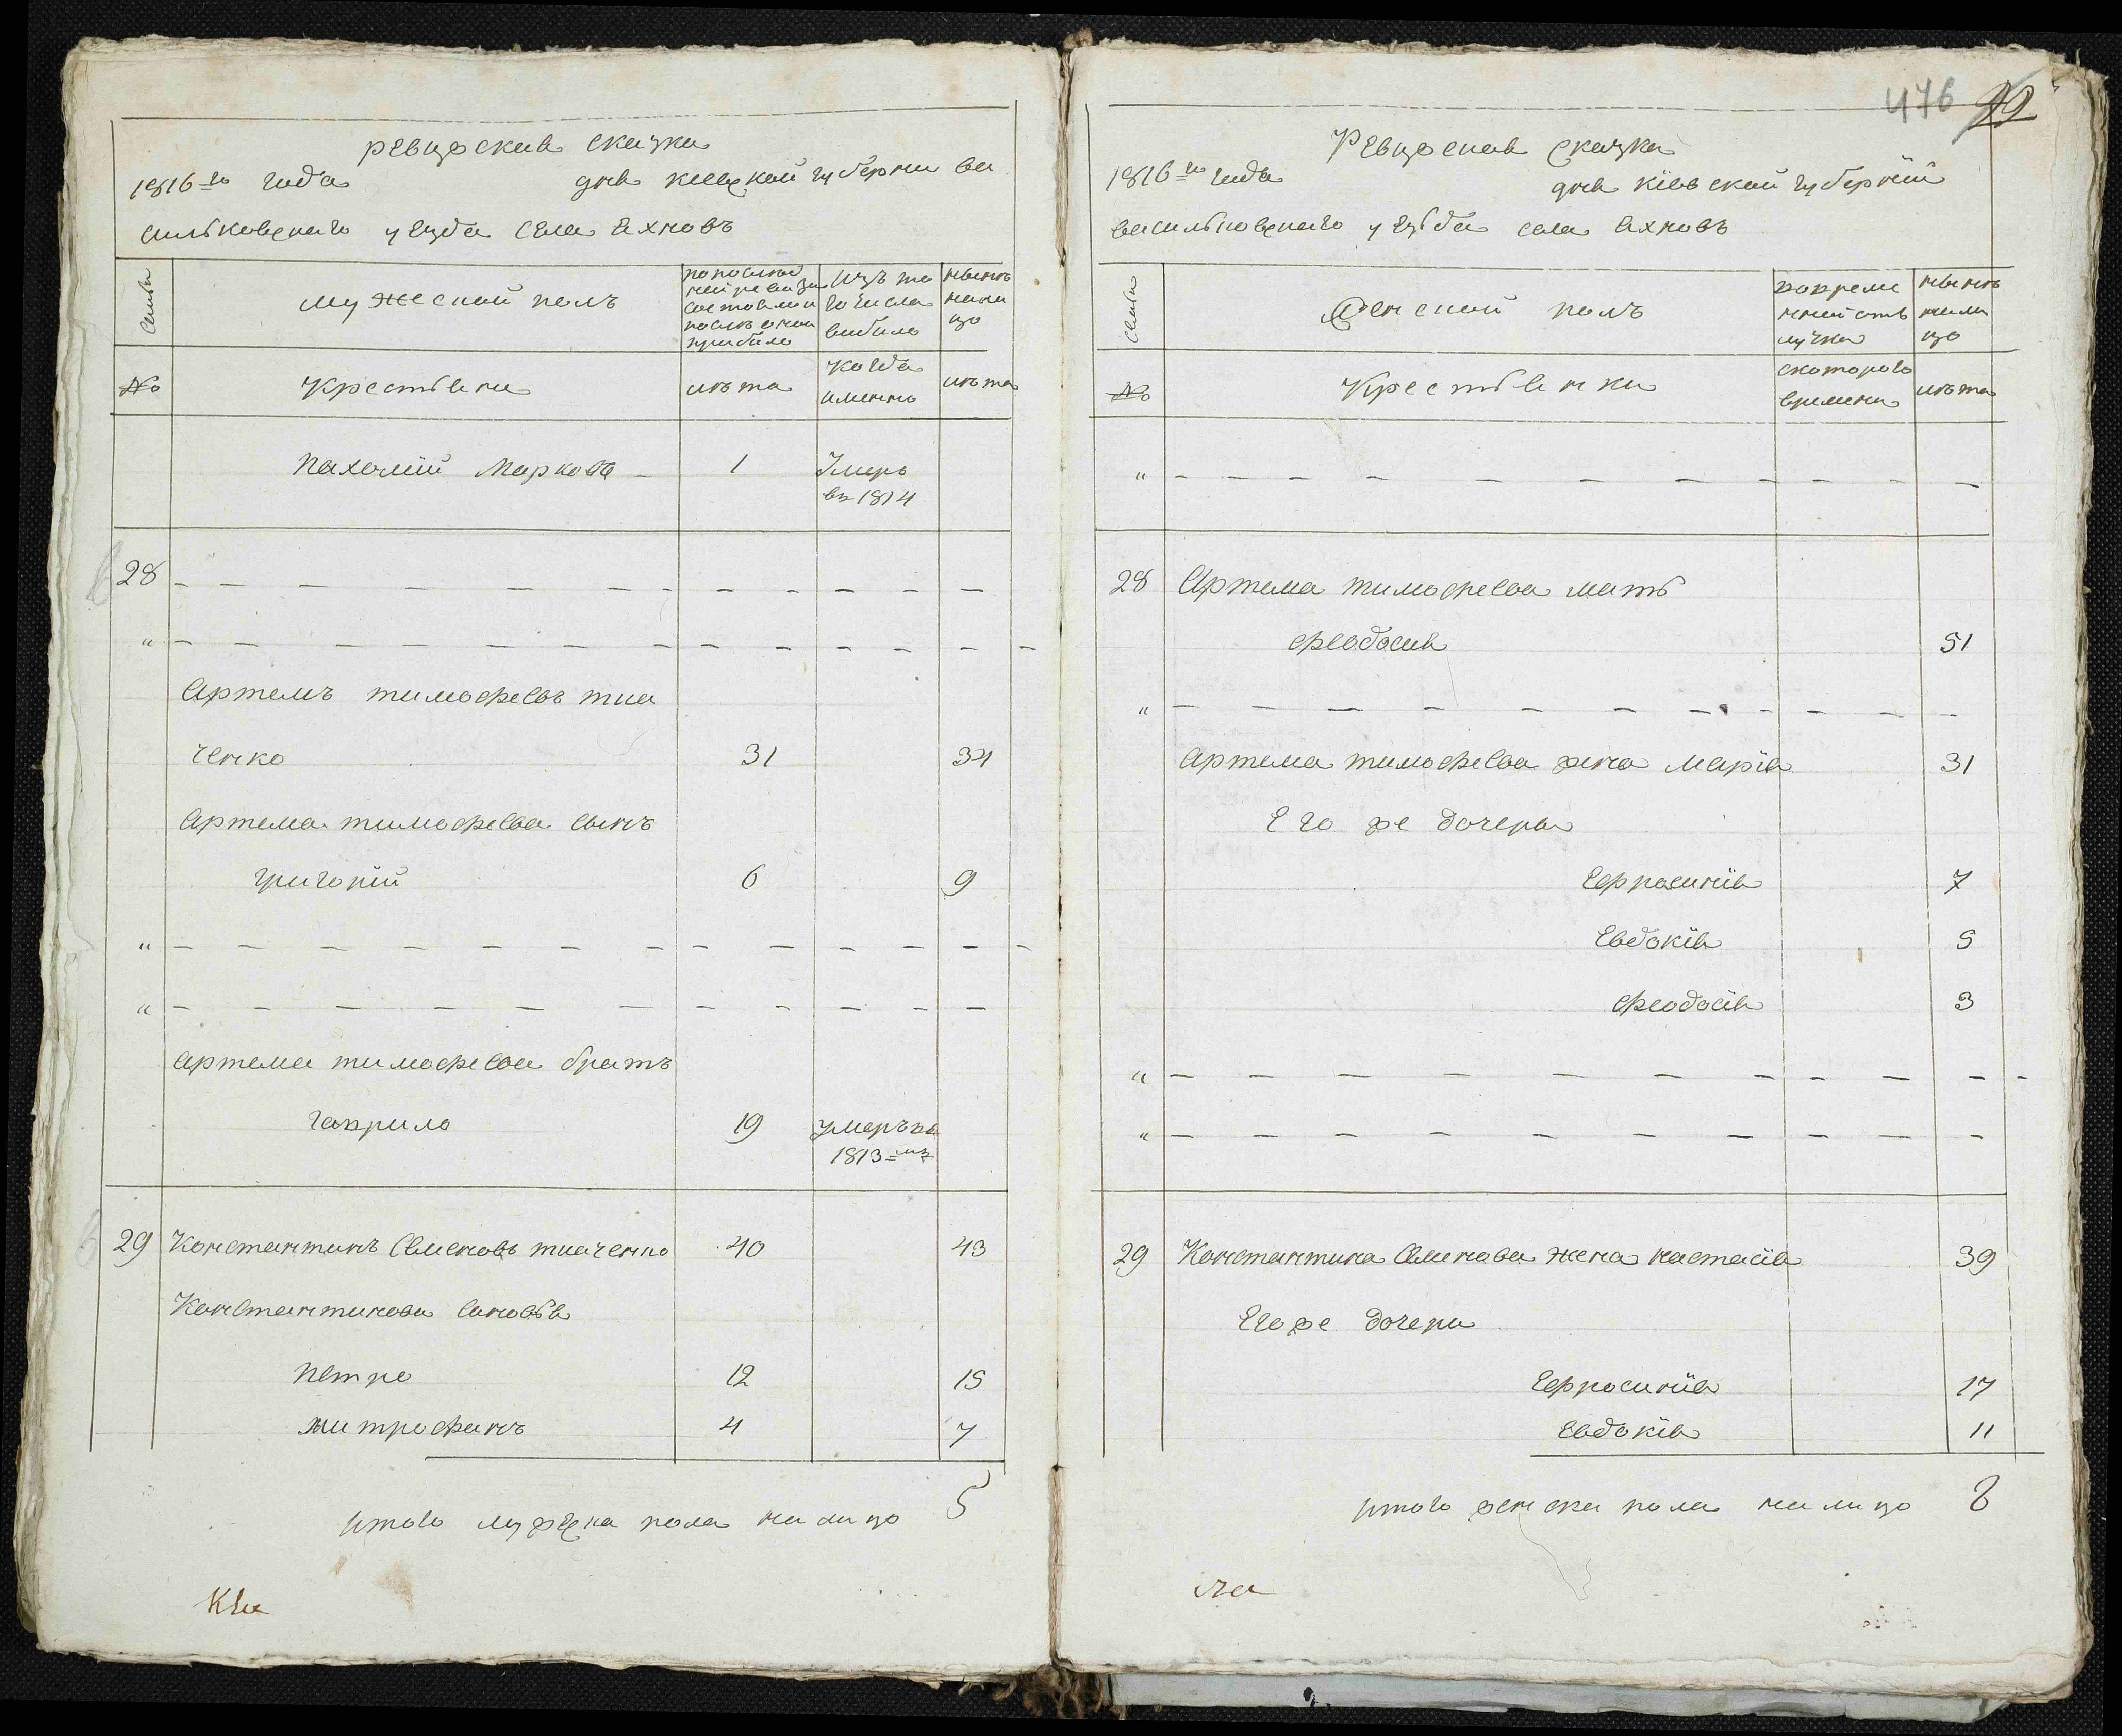 ревизская сказка
1816го года дня киевской губернии ва
сильковского уезда села яхновъ
семьи
мужеской полъ
по последней ревизии состояло и после оной прибыло
изъ того числа выбыло
ныне на лицо
№
крестьяне
лѣта
когда именно
лѣта
пахомій марковъ 1 умеръ
въ 1814
28
"
артемъ тимофеевъ тка
ченко 31 34
артема тимофеева сынъ
григорій 6 9
"
"
артема тимофеева братъ
гаврило 19 умеръ въ
1813мъ
29 константинъ семеновъ ткаченко 40 43
константинова сыновья
петро 12 15
митрофанъ 4 7
итого мужеска пола на лицо 5
476 92
Ревизская сказка
1816го года дня кіевской губерніи
васильковского уезда села яхновъ
семьи
женской полъ
во временной отлучке
ныне на лицо
№
крестьянки
с которого времени
лѣта
"
28 артема тимофеева мать
феодосия 51
"
артема тимофеева жена марія 31
его же дочери
ефросинія 7
евдокія 5
феодосія 3
"
"
29 константина семенова жена настасія 39
его же дочери
ефросинія 17
евдокія 11
итого женска пола на лицо 8